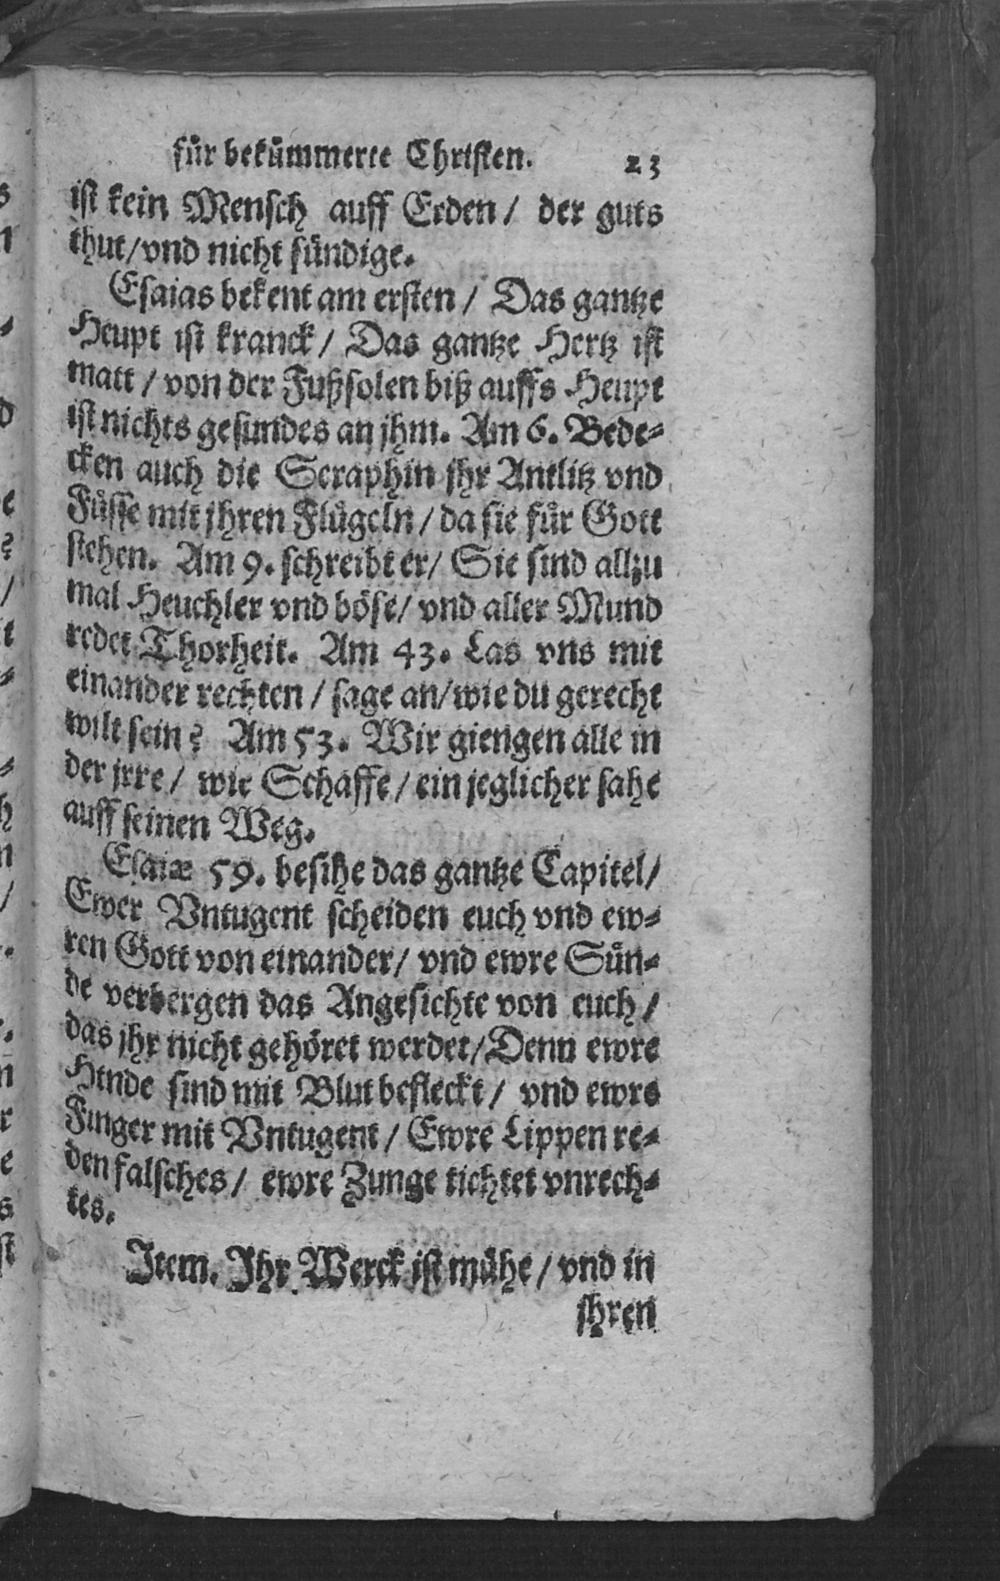 für bekümmerte Christen. 23
ist kein Mensch auff Erden / der guts
thut / vnd nicht sündige.
Esaias bekent am ersten / Das gantze
Heupt ist kranck / Das gantze Hertz ist
matt / von der Fußsolen biß auffs Heupt
ist nichts gesundes an jhm. Am 6. Bede-
cken auch die Seraphin jhr Antlitz vnd
Füsse mit jhren Flügeln / da sie für Gott
stehen. Am 9. schreibt er / Sie sind allzu
mal Heuchler vnd böse / vnd aller Mund
redet Thorheit. Am 43. Las vns mit
einander rechten / sage an / wie du gerecht
wilt sein? Am 53. Wir giengen alle in
der jrre / wie Schaffe / ein jeglicher sahe
auff seinen Weg.
Esaiæ 59. besihe das gantze Capitel /
Ewer Vntugent scheiden euch vnd ew-
ren Gott von einander / vnd ewre Sün-
de verbergen das Angesichte von euch /
das jhr nicht gehöret werdet / Denn ewre
Hende sind mit Blut befleckt / vnd ewre
Finger mit Vntugent / Ewre Lippen re-
den falsches / ewre Zunge tichtet vnrech-
tes.
Item. Ihr Werck ist mühe / vnd in
jhren